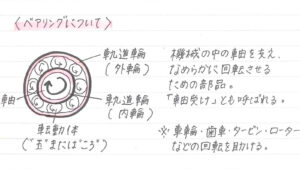 〈ベアリングについて〉
軌道輪
(外輪)
軸
軌道輪
(内輪)
転動体
("玉"または"ころ")
機械の中の軸を支え、
なめらかに回転させる
ための部品。
「軸受け」とも呼ばれる。
※ 車輪・歯車・タービン・ローター
などの回転を助ける。